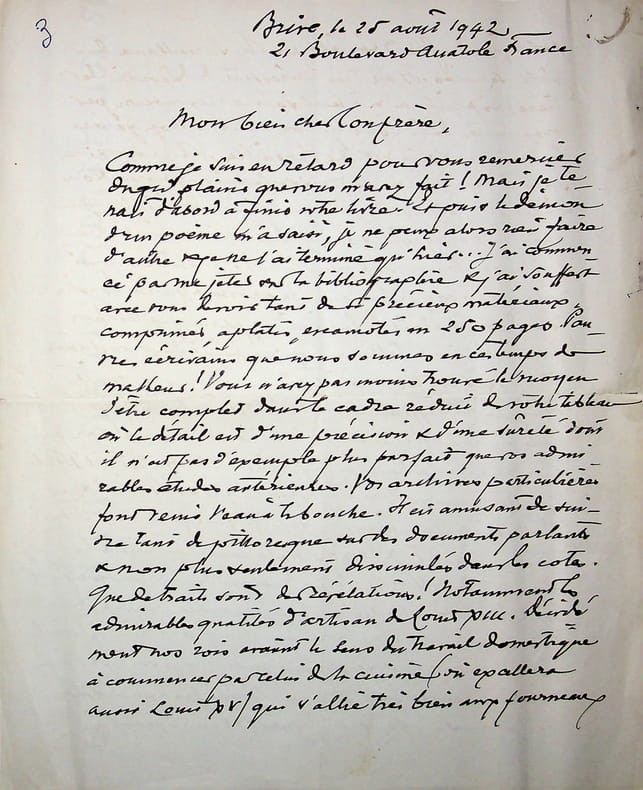 3
Brive, le 25 août 1942
21 Boulevard Anatole France
Mon bien cher Confrère,
Comme je suis en retard pour vous remercier
du plaisir que vous m'avez fait ! Mais je te-
nais d'abord à finir votre livre. Et puis le démon
d'un poème m'a saisi, je ne peux alors rien faire
d'autre & je ne l'ai terminé qu'hier... J'ai commen-
cé par me jeter sur la bibliographie & j'ai souffert
avec vous de voir tant de si précieux matériaux,
comprimés, aplatis, escamotés en 250 pages. Pau-
vres écrivains que nous sommes en ces temps de
malheur ! Vous n'avez pas moins trouvé le moyen
d'être complet dans le cadre réduit de votre tableau
où le détail est d'une précision & d'une sûreté dont
il n'est pas d'exemple plus parfait que vos admi-
rables études antérieures. Vos archives particulières
font venir l'eau à la bouche. Il est amusant de sui-
vre tant de pittoresque sur des documents parlants
& non plus seulement dissimulés dans les cotes.
Que de traits sont des révélations ! Notamment les
admirables qualités d'artisan de Louis XIII. Décidé-
ment nos rois avaient le sens du travail domestique
à commencer par celui de la cuisine (où excellera
aussi Louis XV) qui s'allie très bien aux fourneaux